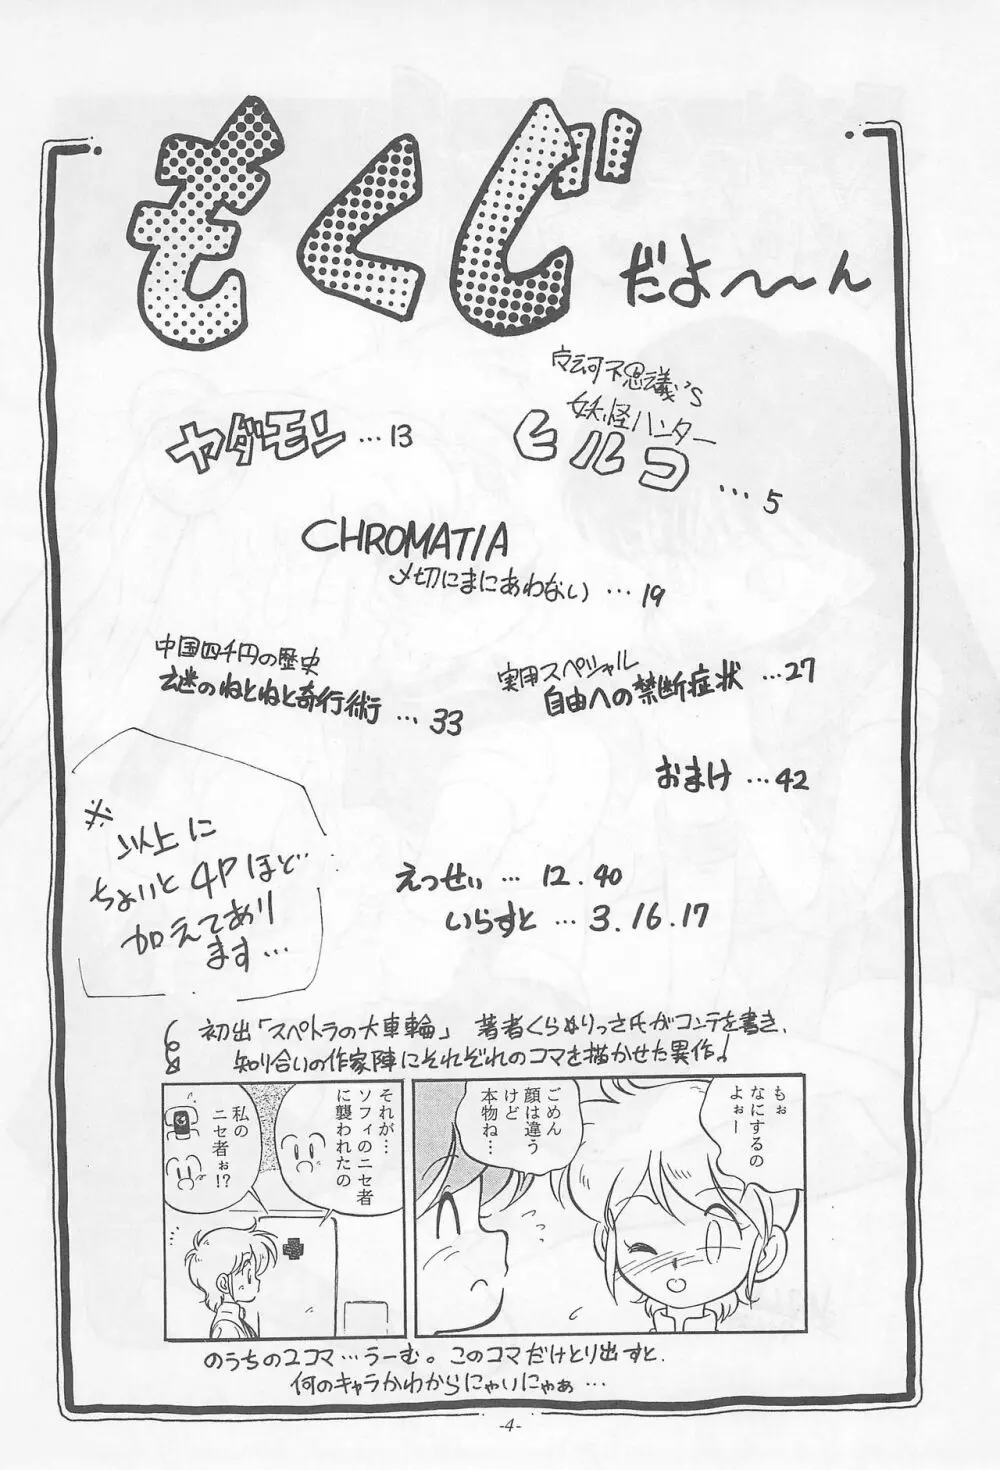 もくじ だよ〜〜ん
白河不思議'S
妖怪ハンター
ヒルコ
…5
ヤダモン …13
CHROMATIA
〆切にまにあわない …19
実用スペシャル
自由への禁断症状 …27
中国四千円の歴史
謎のねとねと奇行術 …33
おまけ …42
※
以上に
ちょいと4Pほど
加えてあり
ます…
えっせい … 12.40
いらすと … 3.16.17
初出「スペトラの大車輪」 著者くらぬりっさ氏がコンテを書き、
知り合いの作家陣にそれぞれのコマを描かせた異作!
もぉ
なにするの
よぉー
ごめん
顔は違う
けど
本物ね…
それが…
ソフィのニセ者
に襲われたの
私の
ニセ者ぉ!?
のうちの2コマ…うーむ。このコマだけとり出すと、
何のキャラかわからにゃいにゃぁ …
-4-